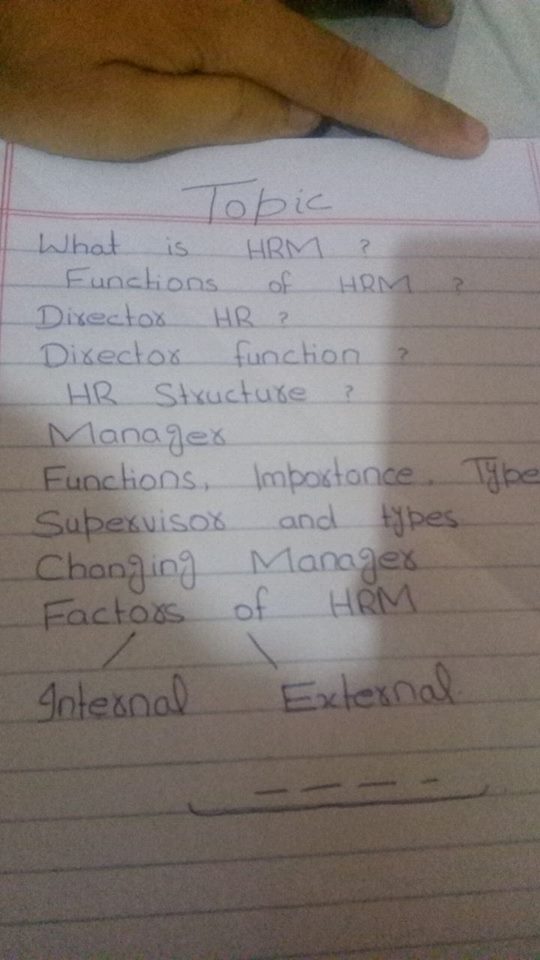 Topic
What is HRM ?
Functions of HRM ?
Director HR ?
Director function ?
HR Structure ?
Manager
Functions, Importance, Type
Supervisor and types
Changing Manager
Factors of HRM
Internal External